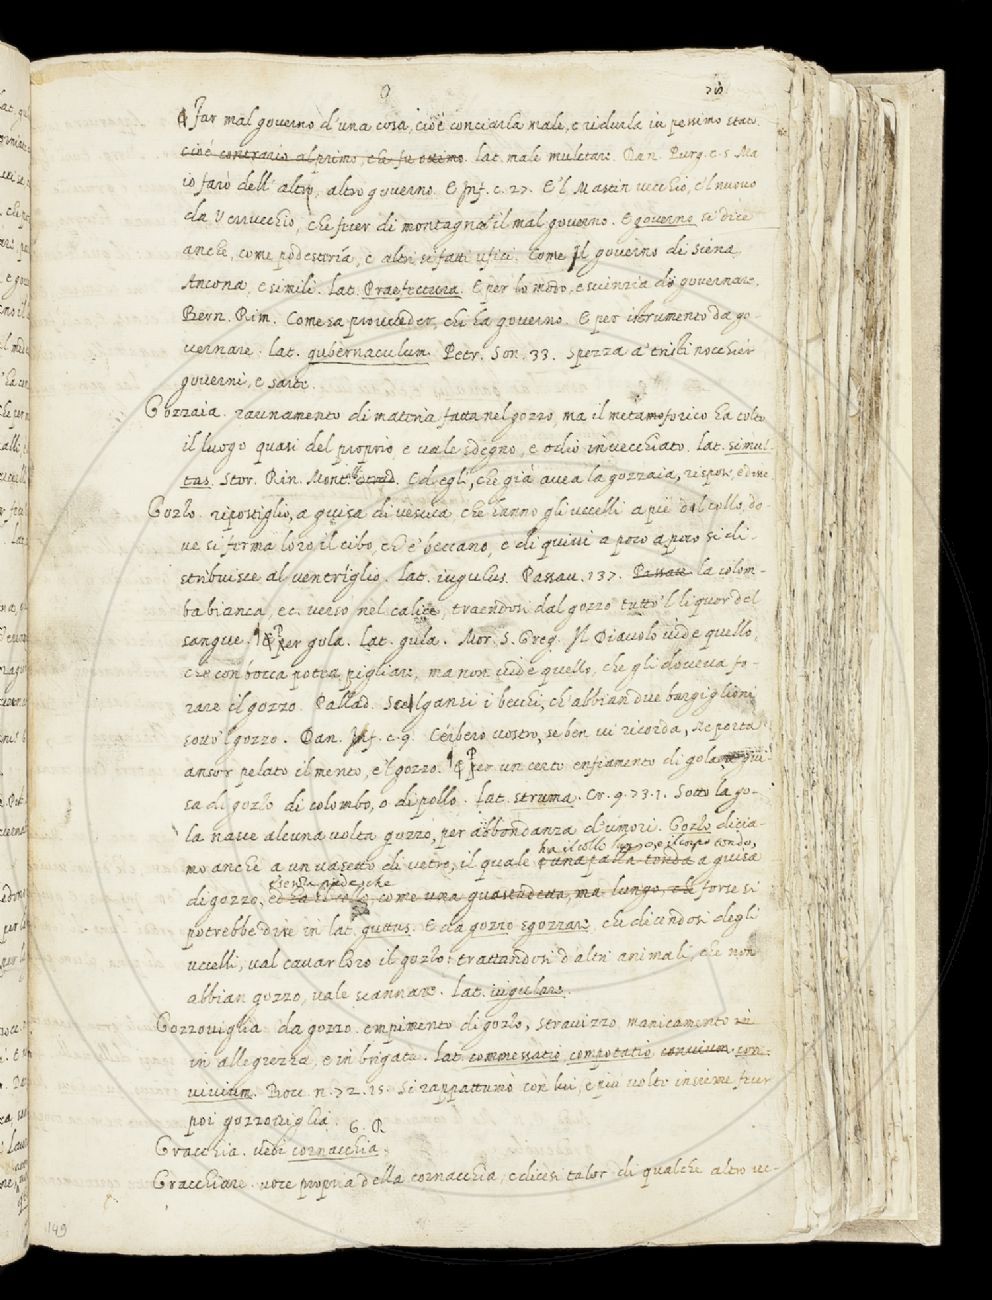 G
Far mal governo d'una cosa, cioè conciarla male, e ridurla in pessimo stato.
cioè contrario al primo, che fu ottimo. lat. male mulctare. Dan. Purg. c. 5. Ma
io farò dell' altro, altro governo. E Inf. c. 27. E 'l Mastin vecchio, e 'l nuovo
da Verrucchio, che fecer di montagna il mal governo. E governo si dice
anche, come podestería, e altri sì fatti ufici. Come Il governo di Siena,
Ancona, e simili. lat. Praefectura. E per lo modo, e scienzia di governare.
Bern. Rim. Come sa proveder, chi ha governo. E per istrumento da go-
vernare. lat. gubernaculum. Petr. Son. 33. Spezza a' tristi nocchier
governi, e sarte.
Gozzaia. raunamento di materia fatta nel gozzo, ma il metamoforico ha tolto
il luogo quasi del proprio e vale sdegno, e odio invecchiato. lat. simul-
tas. Stor. Rin. Mont. Ed egli, che già avea la gozzaia, rispose, e disse.
Gozzo. ripostiglio, a guisa di vescica che hanno gli uccelli a piè del collo, do-
ve si forma loro il cibo, ch' e' beccano, e di quivi a poco a poco si di-
stribuisce al ventriglio. lat. iugulus. Passav. 137. Passav. la colom-
ba bianca, ec. versò nel calice, traendosi dal gozzo tutto 'l liquor del
sangue. E Per gola. lat. gula. Mor. S. Greg. Il Diavolo vide quello,
che con bocca potea pigliare, ma non vide quello, che gli doveva fo-
rare il gozzo. Pallad. Scelgansi i becchi, ch' abbian due bargiglioni
sotto 'l gozzo. Dan. Inf. c. 9. Cerbero vostro, se ben vi ricorda, Ne porta
ancor pelato il mento, e 'l gozzo. E Per un certo enfiamento di gola gui-
sa di gozzo di colombo, o di pollo. lat. struma. Cr. 9. 73. 1. Sotto la go-
la nasce alcuna volta gozzo, per abbondanza d'umori. Gozzo dicia-
ha il collo lungo, e il corpo tondo,
mo anche a un vasetto di vetro, il quale è una palla tonda a guisa
e senza piede, che
di gozzo, ed ha il collo come una guastadetta, ma lungo, che forse si
potrebbe dire in lat. guttus. E da gozzo sgozzare, che dicendosi degli
uccelli, val cavar loro il gozzo: trattandosi d'altri animali, che non
abbian gozzo, vale scannare. lat. iugulare.
Gozzoviglia. da gozzo. empimento di gozzo, stravizzo, manicamento in
in allegrezza, e in brigata. lat. commessatio, compotatio, convivium, con-
vivium. Bocc. n. 72. 15. Si rappattumò con lui, e più volte insieme fecer
poi gozzoviglia.
G. R
Gracchia. vedi cornacchia.
Gracchiare. voce propria della cornacchia, e dicesi talor di qualche altro uc-
149